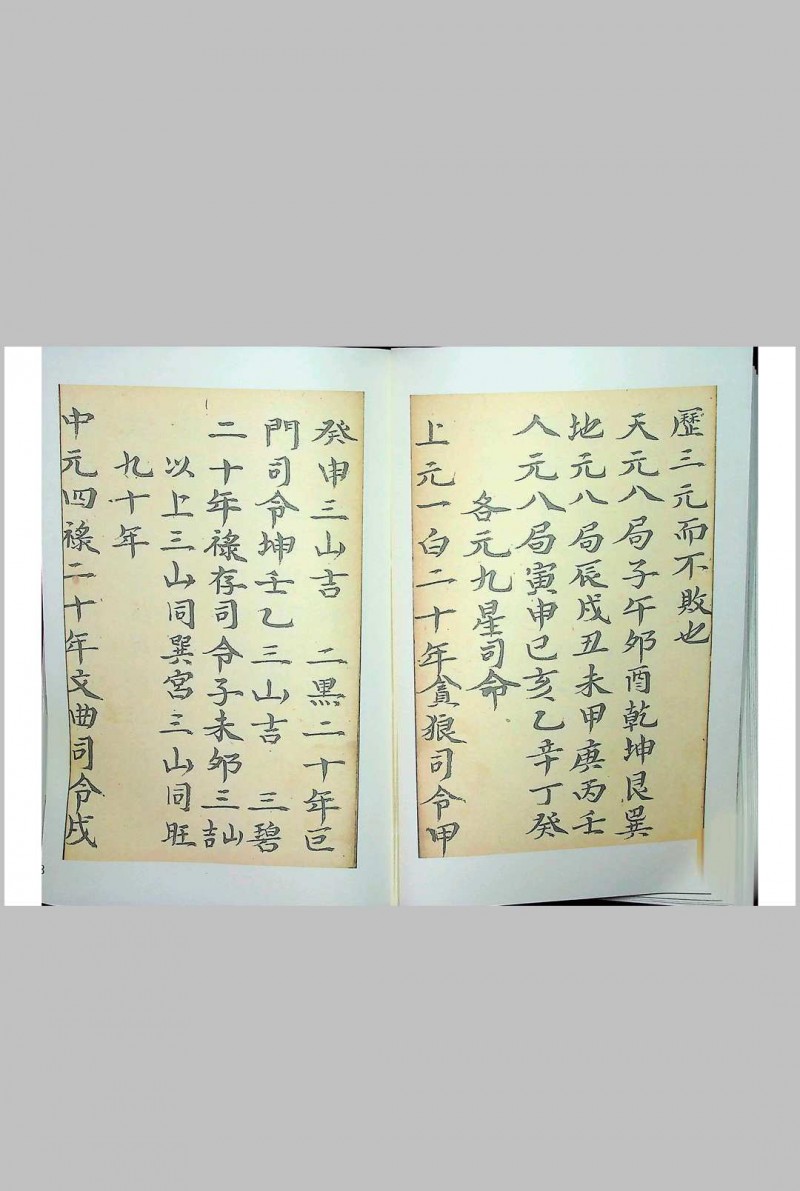 歷三元而不敗也
天元八局子午夘酉乾坤艮巽
地元八局辰戌丑未甲庚丙壬
人元八局寅申巳亥乙辛丁癸
各元九星司命
上元一白二十年貪狼司令甲
癸申三山吉 二黑二十年巨
門司令坤壬乙三山吉 三碧
二十年禄存司令子未夘三山吉
以上三山同巽宮三山同旺
九十年
中元四綠二十年文曲司令戌